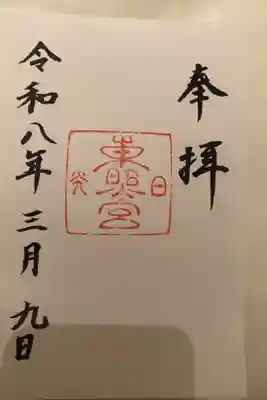 奉拝
日光
東照宮
令和八年三月九日